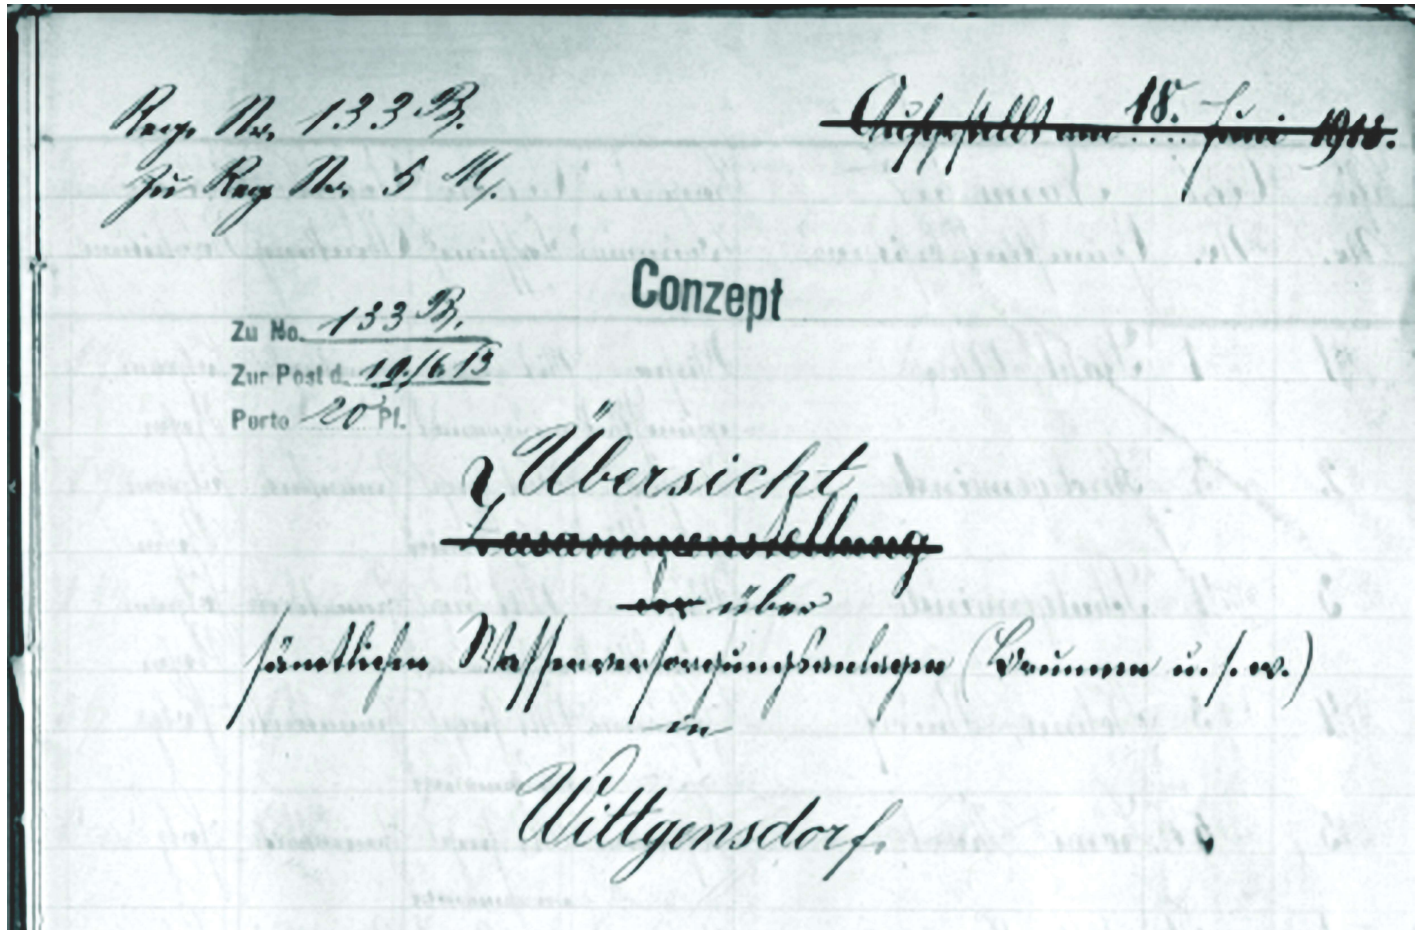 Reg. Nr. 133 B.
Zu Reg. Nr. 5 M.
Aufgestellt am 18. Juni 1913.
Conzept
Zu No. 133 B.
Zur Post d. 19./6. 13
Porto 20 Pf.
Übersicht
Zusammenstellung
der über
sämtlichen Wasserversorgungsanlagen (Brunnen u. s. w.)
in
Wittgensdorf.